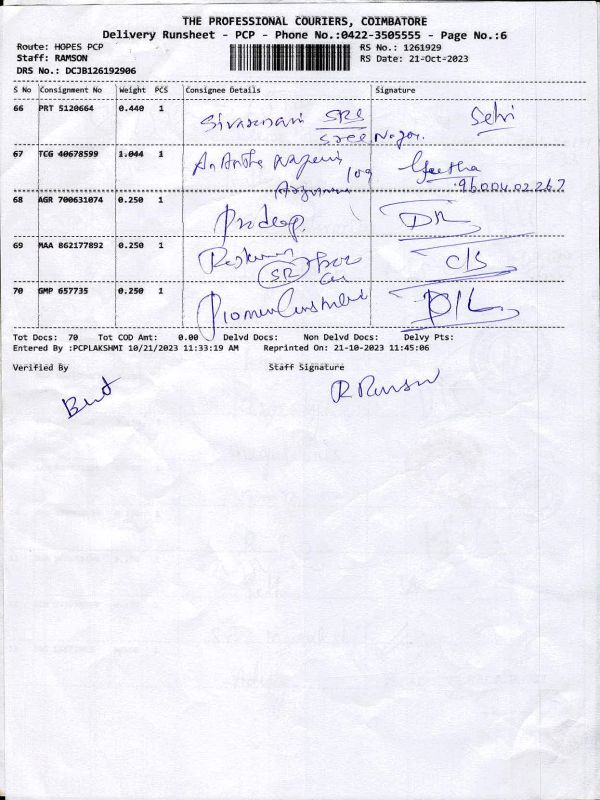 THE PROFESSIONAL COURIERS, COIMBATORE
Delivery Runsheet - PCP - Phone No.:0422-3505555 - Page No.:6
Route: HOPES PCP RS No.: 1261929
Staff: RAMSON RS Date: 21-Oct-2023
DRS No.: DCJB126192906
S No Consignment No Weight PCS Consignee Details Signature
66 PRT 5120664 0.440 1 SRS Selvi
Sree Nagar.
67 TCG 40678599 1.044 1 Geetha
109 96004 02267
68 AGR 700631074 0.250 1 Pradeep.
69 MAA 862177892 0.250 1
SR
70 GMP 657735 0.250 1
Tot Docs: 70 Tot COD Amt: 0.00 Delvd Docs: Non Delvd Docs: Delvy Pts:
Entered By :PCPLAKSHMI 10/21/2023 11:33:19 AM Reprinted On: 21-10-2023 11:45:06
Verified By Staff Signature
R Ramson